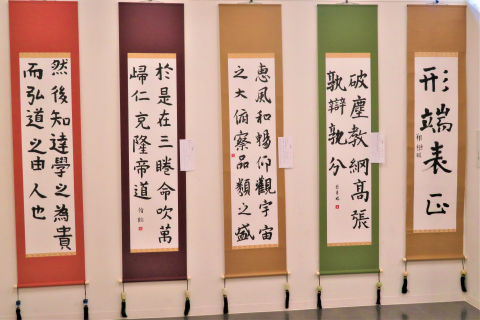 然後知達學之為貴
而弘道之由人也
於是在三睠命吹萬
歸仁克隆帝道
惠風和暢仰觀宇宙
之大俯察品類之盛
破塵教網高張
孰辯孰分
形端表正